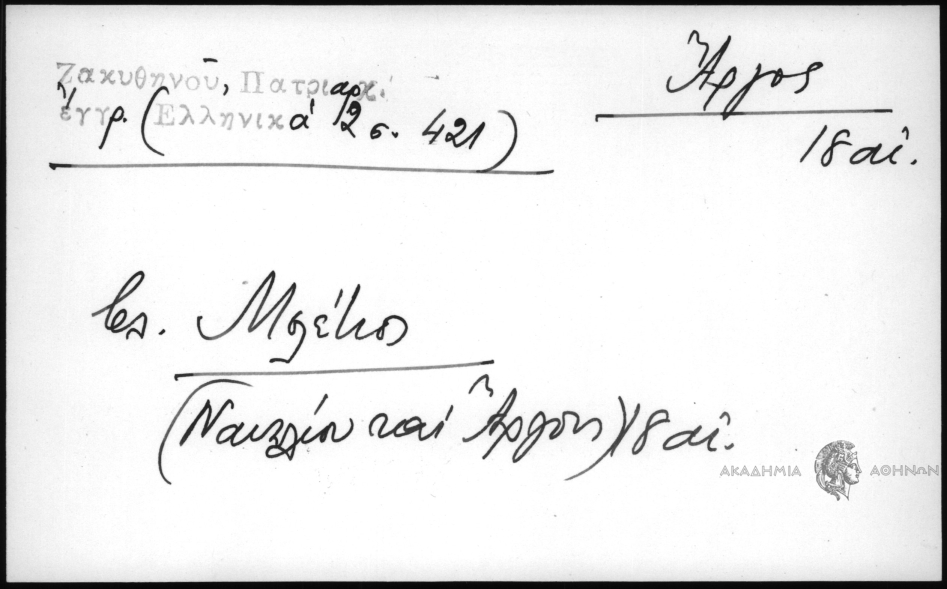 Ζακυθηνοῦ, Πατριαρχ.
ἔγγρ. (Ἑλληνικά 2 σ. 421)
Ἄργος
18 αἰ.
βλ. Μπέτιος
(Ναυπλίου καὶ Ἄργους) 18 αἰ.
ΑΚΑΔΗΜΙΑ ΑΘΗΝΩΝ